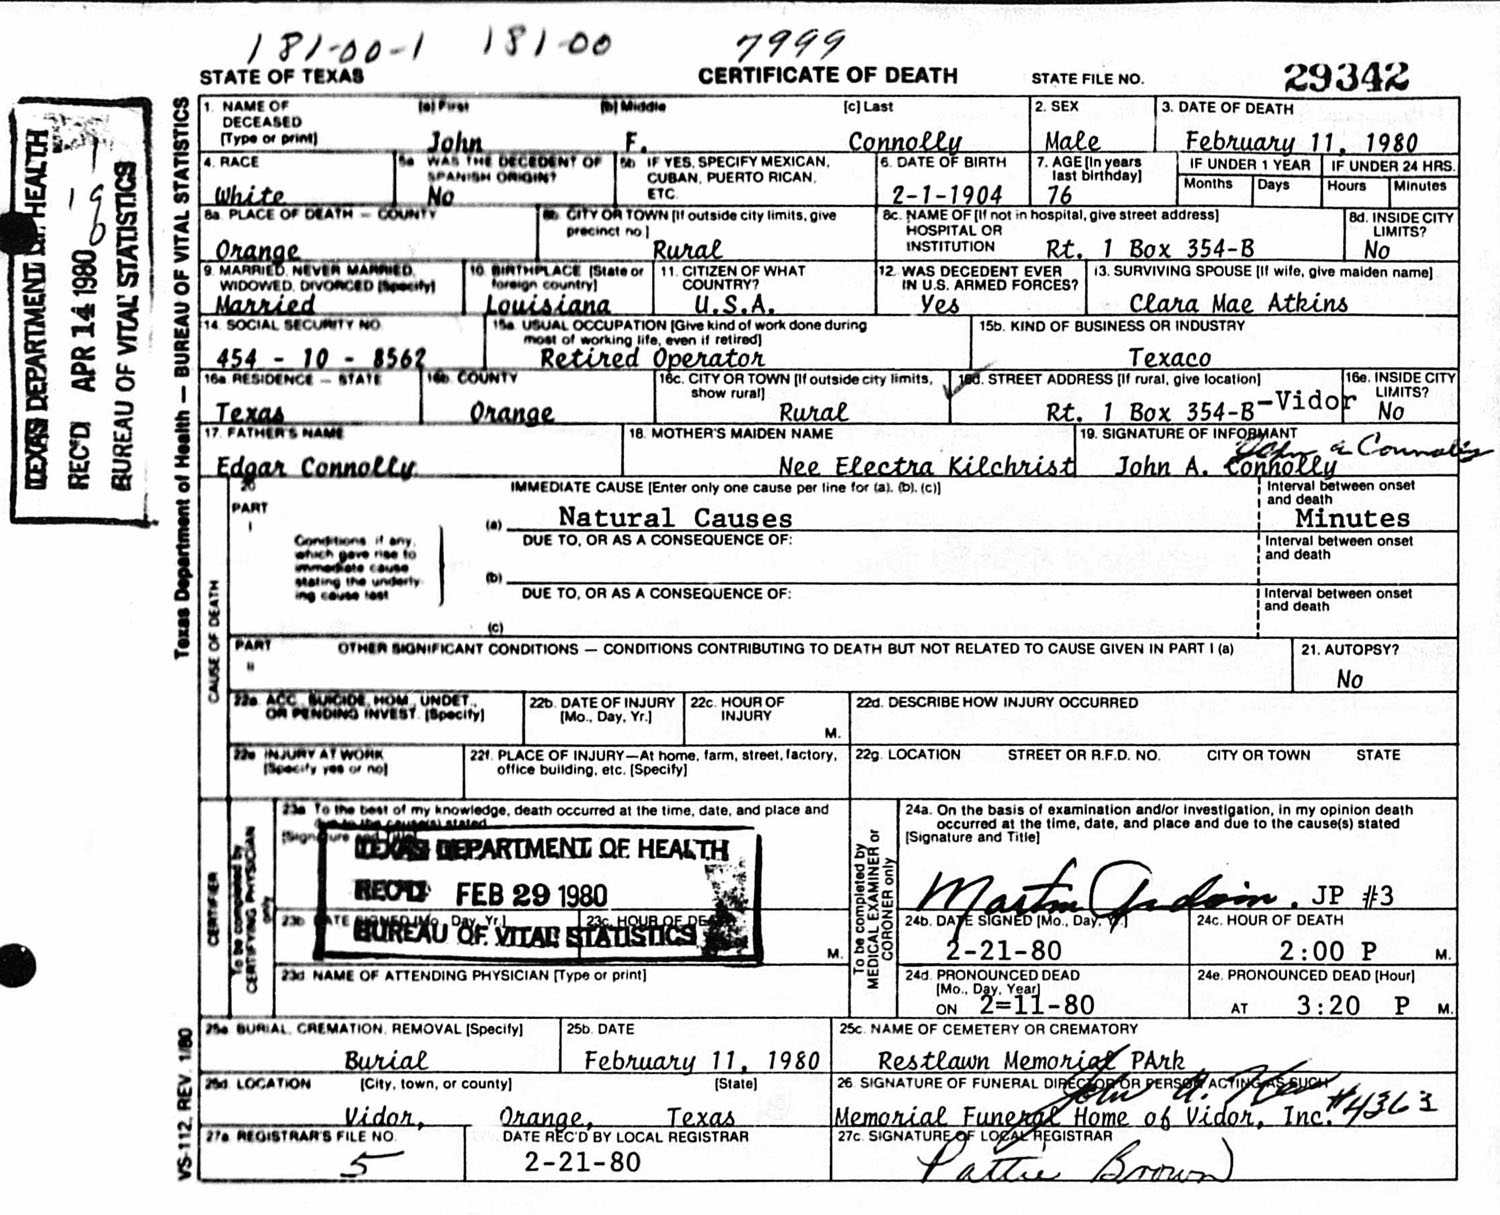 181-00-1 181-00 7999
STATE OF TEXAS CERTIFICATE OF DEATH STATE FILE NO. 29342
TEXAS DEPARTMENT OF HEALTH
REC'D APR 14 1980
BUREAU OF VITAL STATISTICS
Texas Department of Health — BUREAU OF VITAL STATISTICS
1. NAME OF DECEASED [Type or print] (a) First (b) Middle [c] Last
John F. Connolly
2. SEX
Male
3. DATE OF DEATH
February 11, 1980
4. RACE
White
5a WAS THE DECEDENT OF SPANISH ORIGIN?
No
5b IF YES, SPECIFY MEXICAN, CUBAN, PUERTO RICAN, ETC.
6. DATE OF BIRTH
2-1-1904
7. AGE [In years last birthday]
76
IF UNDER 1 YEAR
Months Days
IF UNDER 24 HRS.
Hours Minutes
8a. PLACE OF DEATH — COUNTY
Orange
8b. CITY OR TOWN [If outside city limits, give precinct no.]
Rural
8c. NAME OF [If not in hospital, give street address] HOSPITAL OR INSTITUTION
Rt. 1 Box 354-B
8d. INSIDE CITY LIMITS?
No
9. MARRIED, NEVER MARRIED, WIDOWED, DIVORCED [Specify]
Married
10. BIRTHPLACE [State or foreign country]
Louisiana
11. CITIZEN OF WHAT COUNTRY?
U.S.A.
12. WAS DECEDENT EVER IN U.S. ARMED FORCES?
Yes
13. SURVIVING SPOUSE [If wife, give maiden name]
Clara Mae Atkins
14. SOCIAL SECURITY NO.
454 - 10 - 8562
15a. USUAL OCCUPATION [Give kind of work done during most of working life, even if retired]
Retired Operator
15b. KIND OF BUSINESS OR INDUSTRY
Texaco
16a. RESIDENCE — STATE
Texas
16b. COUNTY
Orange
16c. CITY OR TOWN [If outside city limits, show rural]
Rural
16d. STREET ADDRESS [If rural, give location]
Rt. 1 Box 354-B-Vidor
16e. INSIDE CITY LIMITS?
No
17. FATHER'S NAME
Edgar Connolly
18. MOTHER'S MAIDEN NAME
Nee Electra Kilchrist
19. SIGNATURE OF INFORMANT
John A. Connolly
CAUSE OF DEATH
20
PART I
IMMEDIATE CAUSE [Enter only one cause per line for (a), (b), (c)]
Conditions, if any, which gave rise to immediate cause stating the underlying cause last
(a) Natural Causes
Interval between onset and death
Minutes
DUE TO, OR AS A CONSEQUENCE OF:
Interval between onset and death
(b)
DUE TO, OR AS A CONSEQUENCE OF:
Interval between onset and death
(c)
PART II
OTHER SIGNIFICANT CONDITIONS — CONDITIONS CONTRIBUTING TO DEATH BUT NOT RELATED TO CAUSE GIVEN IN PART I (a)
21. AUTOPSY?
No
22a. ACC., SUICIDE, HOM., UNDET., OR PENDING INVEST. [Specify]
22b. DATE OF INJURY [Mo., Day, Yr.]
22c. HOUR OF INJURY
M.
22d. DESCRIBE HOW INJURY OCCURRED
22e INJURY AT WORK [Specify yes or no]
22f. PLACE OF INJURY—At home, farm, street, factory, office building, etc. [Specify]
22g. LOCATION STREET OR R.F.D. NO. CITY OR TOWN STATE
CERTIFIER
To be completed by CERTIFYING PHYSICIAN only
23a To the best of my knowledge, death occurred at the time, date, and place and due to the cause(s) stated
[Signature and Title]
TEXAS DEPARTMENT OF HEALTH
REC'D FEB 29 1980
BUREAU OF VITAL STATISTICS
23b DATE SIGNED [Mo., Day, Yr.]
23c. HOUR OF DEATH
M.
23d NAME OF ATTENDING PHYSICIAN [Type or print]
To be completed by MEDICAL EXAMINER or CORONER only
24a. On the basis of examination and/or investigation, in my opinion death occurred at the time, date, and place and due to the cause(s) stated
[Signature and Title]
JP #3
24b. DATE SIGNED [Mo., Day, Yr.]
2-21-80
24c. HOUR OF DEATH
2:00 P M.
24d. PRONOUNCED DEAD [Mo., Day, Year]
ON 2=11-80
24e. PRONOUNCED DEAD [Hour]
AT 3:20 P M.
VS-112, REV. 1/80
25a BURIAL, CREMATION, REMOVAL [Specify]
Burial
25b. DATE
February 11, 1980
25c. NAME OF CEMETERY OR CREMATORY
Restlawn Memorial PArk
25d. LOCATION [City, town, or county] [State]
Vidor, Orange, Texas
26. SIGNATURE OF FUNERAL DIRECTOR OR PERSON ACTING AS SUCH
#4363
Memorial Funeral Home of Vidor, Inc.
27a REGISTRAR'S FILE NO.
5
DATE REC'D BY LOCAL REGISTRAR
2-21-80
27c. SIGNATURE OF LOCAL REGISTRAR
Pattie Brown